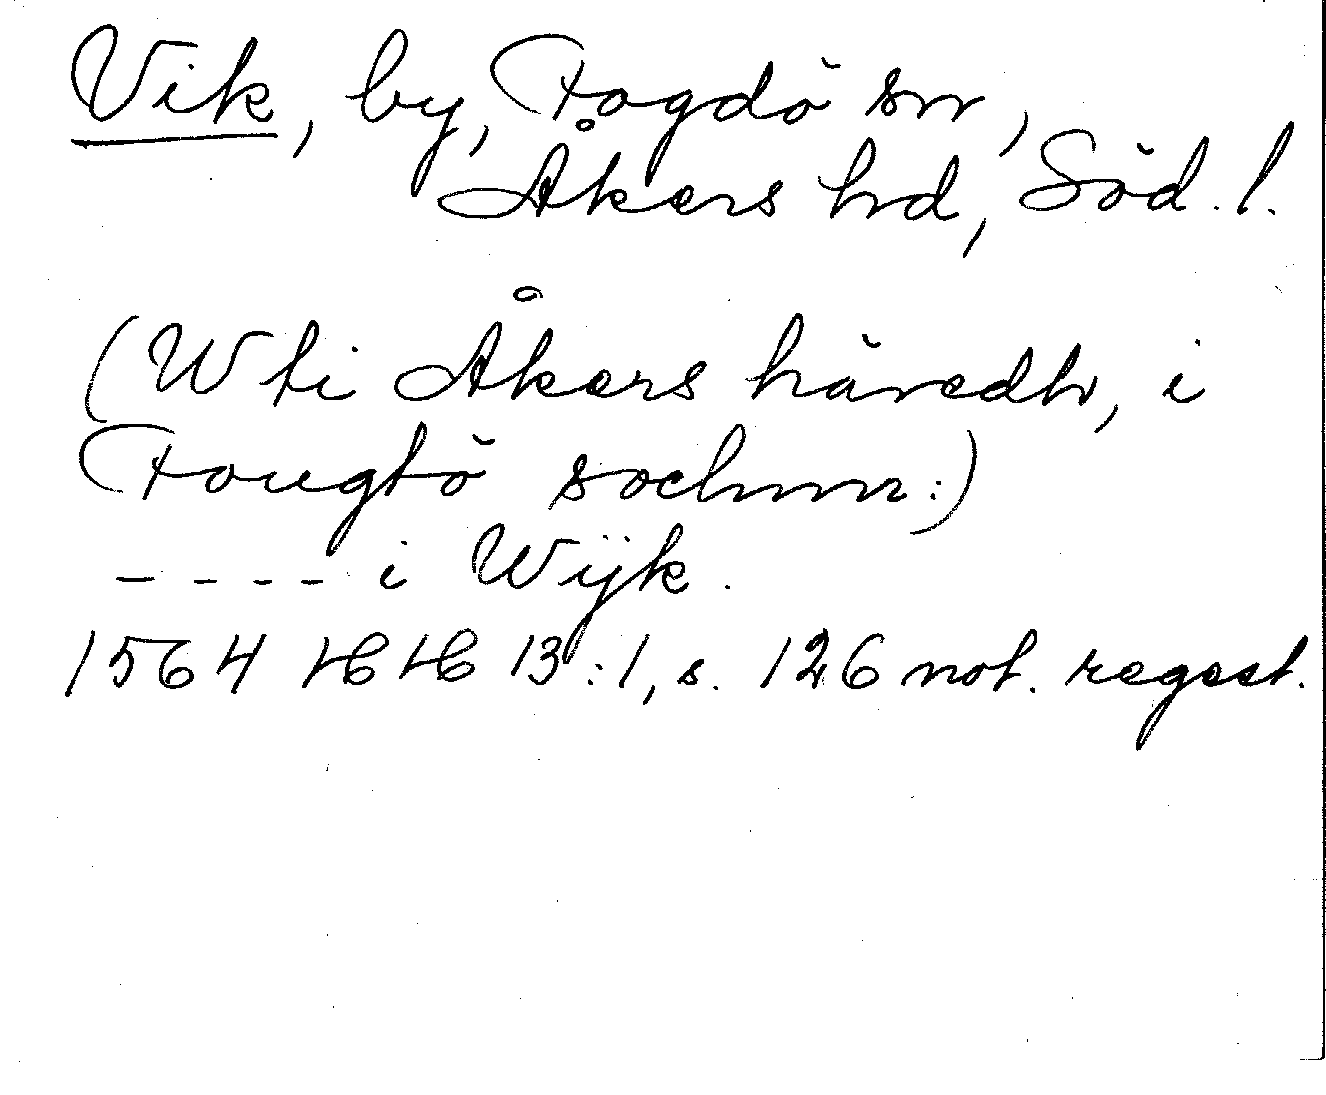 Vik, by, Fogdö sn,
Åkers hd, Söd. l.
(Wti Åkers häredh, i
Fougtö sochnnn:)
---- i Wijk.
1564 HH 13:1, s. 126 not. regest.